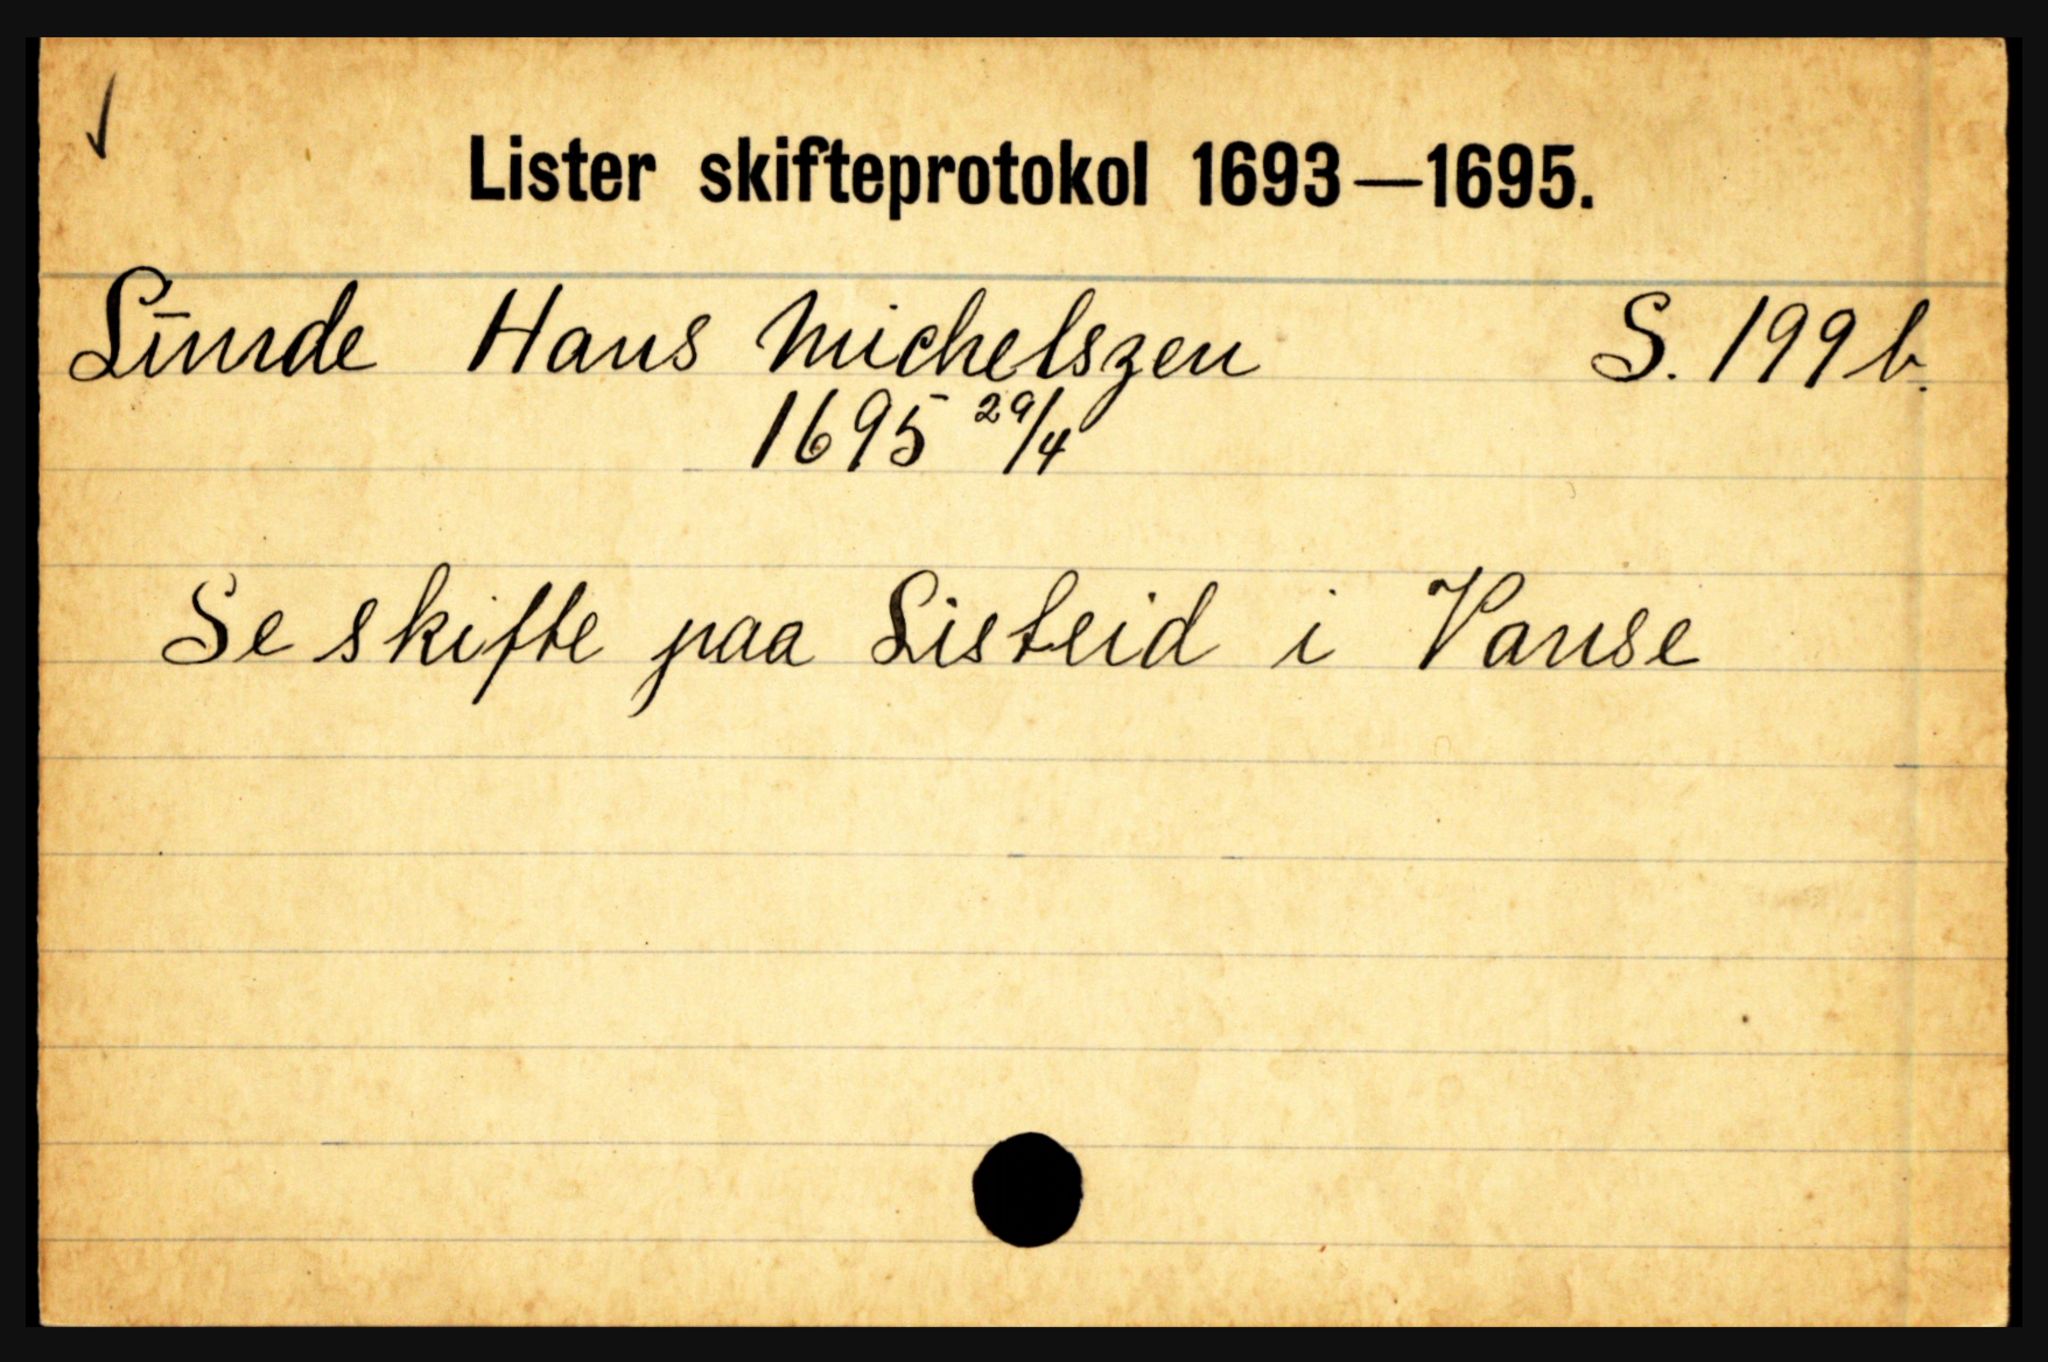 Lister skifteprotokol 1693—1695.
Lunde Hans Michelszen S. 199 b.
1695 29/4
Se skifte paa Listeid i Vanse